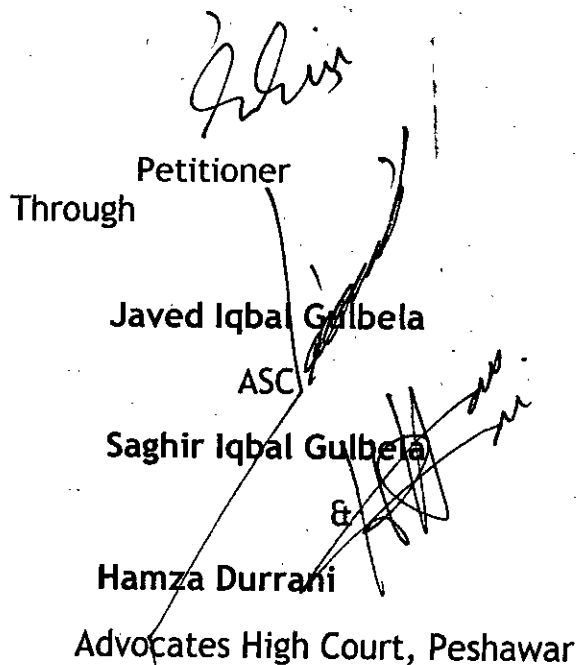 Petitioner
Through
Javed Iqbal Gulbela
ASC
Saghir Iqbal Gulbela
&
Hamza Durrani
Advocates High Court, Peshawar